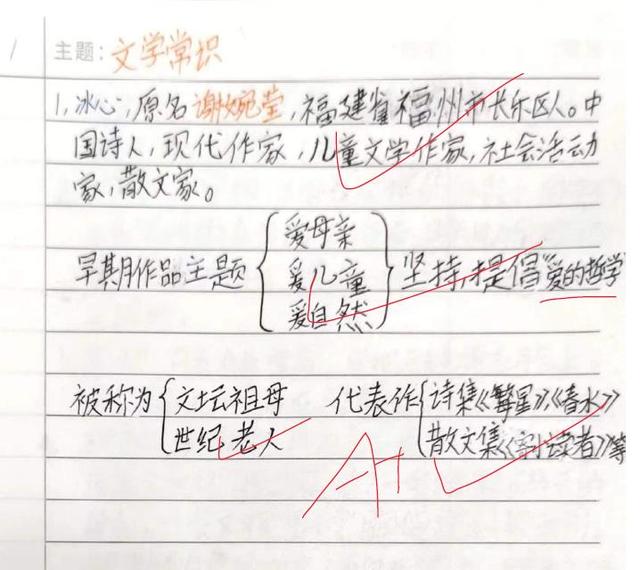 主题：文学常识
1，冰心，原名谢婉莹，福建省福州市长乐区人。中
国诗人，现代作家，儿童文学作家，社会活动
家，散文家。
爱母亲
早期作品主题 爱儿童 坚持，提倡“爱的哲学
爱自然
被称为 文坛祖母 代表作 诗集《繁星》，《春水》
世纪老人 散文集《寄小读者》等
A+